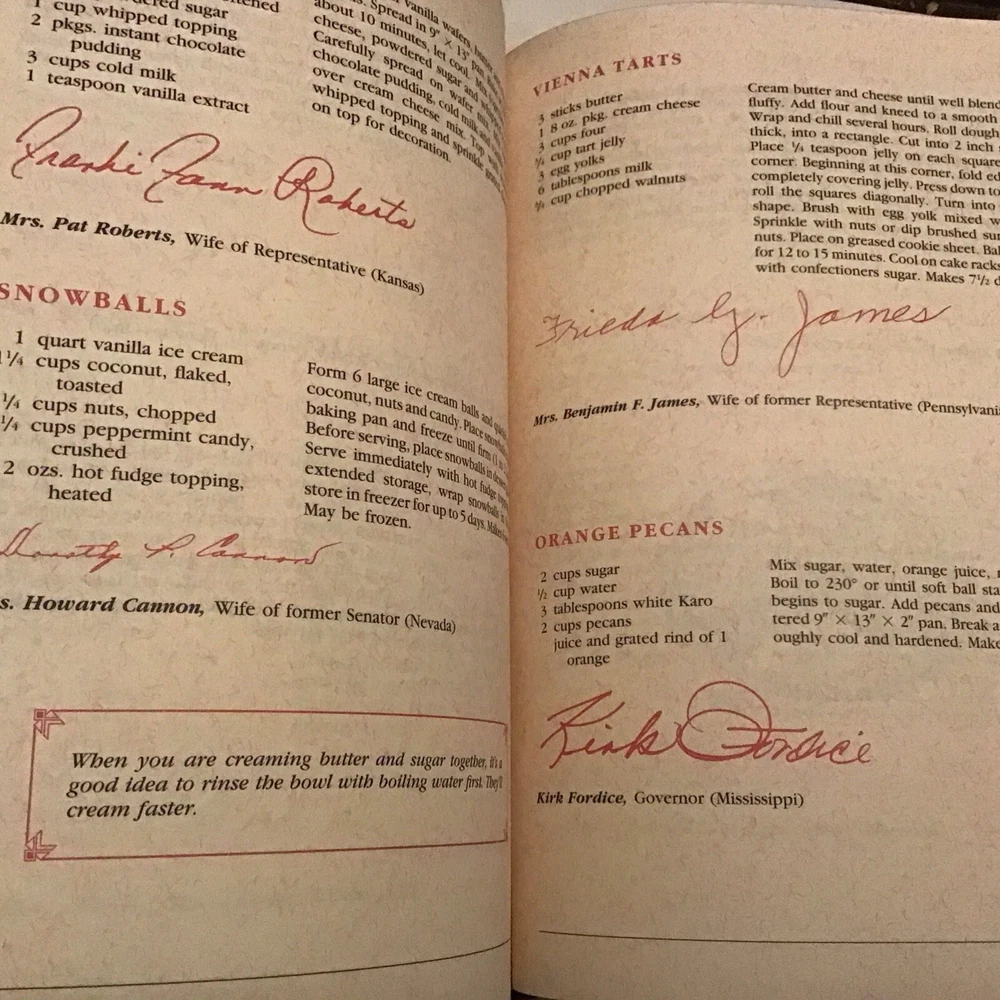 1 cup whipped topping
2 pkgs. instant chocolate
pudding
3 cups cold milk
1 teaspoon vanilla extract
vanilla wafers,
about 10 minutes, let cool.
Spread in 9" × 13" pan
cheese, powdered sugar and
Carefully spread on wafer
chocolate pudding, cold milk and
over cream cheese mix. Top
whipped topping and sprinkle
on top for decoration.
Frankie Fann Roberts
Mrs. Pat Roberts, Wife of Representative (Kansas)
SNOWBALLS
1 quart vanilla ice cream
1¼ cups coconut, flaked,
toasted
¼ cups nuts, chopped
¼ cups peppermint candy,
crushed
2 ozs. hot fudge topping,
heated
Form 6 large ice cream balls and
coconut, nuts and candy. Place
baking pan and freeze until firm
Before serving, place snowballs in
Serve immediately with hot fudge
extended storage, wrap snowballs
store in freezer for up to 5 days.
May be frozen.
Dorothy P. Cannon
s. Howard Cannon, Wife of former Senator (Nevada)
When you are creaming butter and sugar together, it's a
good idea to rinse the bowl with boiling water first. They'll
cream faster.
VIENNA TARTS
3 sticks butter
1 8 oz. pkg. cream cheese
3 cups four
¾ cup tart jelly
3 egg yolks
6 tablespoons milk
¾ cup chopped walnuts
Cream butter and cheese until well blend
fluffy. Add flour and kneed to a smooth
Wrap and chill several hours. Roll dough
thick, into a rectangle. Cut into 2 inch
Place ¼ teaspoon jelly on each square
corner. Beginning at this corner, fold ed
completely covering jelly. Press down to
roll the squares diagonally. Turn into
shape. Brush with egg yolk mixed w
Sprinkle with nuts or dip brushed sur
nuts. Place on greased cookie sheet. Ba
for 12 to 15 minutes. Cool on cake racks
with confectioners sugar. Makes 7½ d
Frieda G. James
Mrs. Benjamin F. James, Wife of former Representative (Pennsylvania
ORANGE PECANS
2 cups sugar
½ cup water
3 tablespoons white Karo
2 cups pecans
juice and grated rind of 1
orange
Mix sugar, water, orange juice, r
Boil to 230° or until soft ball sta
begins to sugar. Add pecans and
tered 9" × 13" × 2" pan. Break a
oughly cool and hardened. Make
Kirk Fordice
Kirk Fordice, Governor (Mississippi)